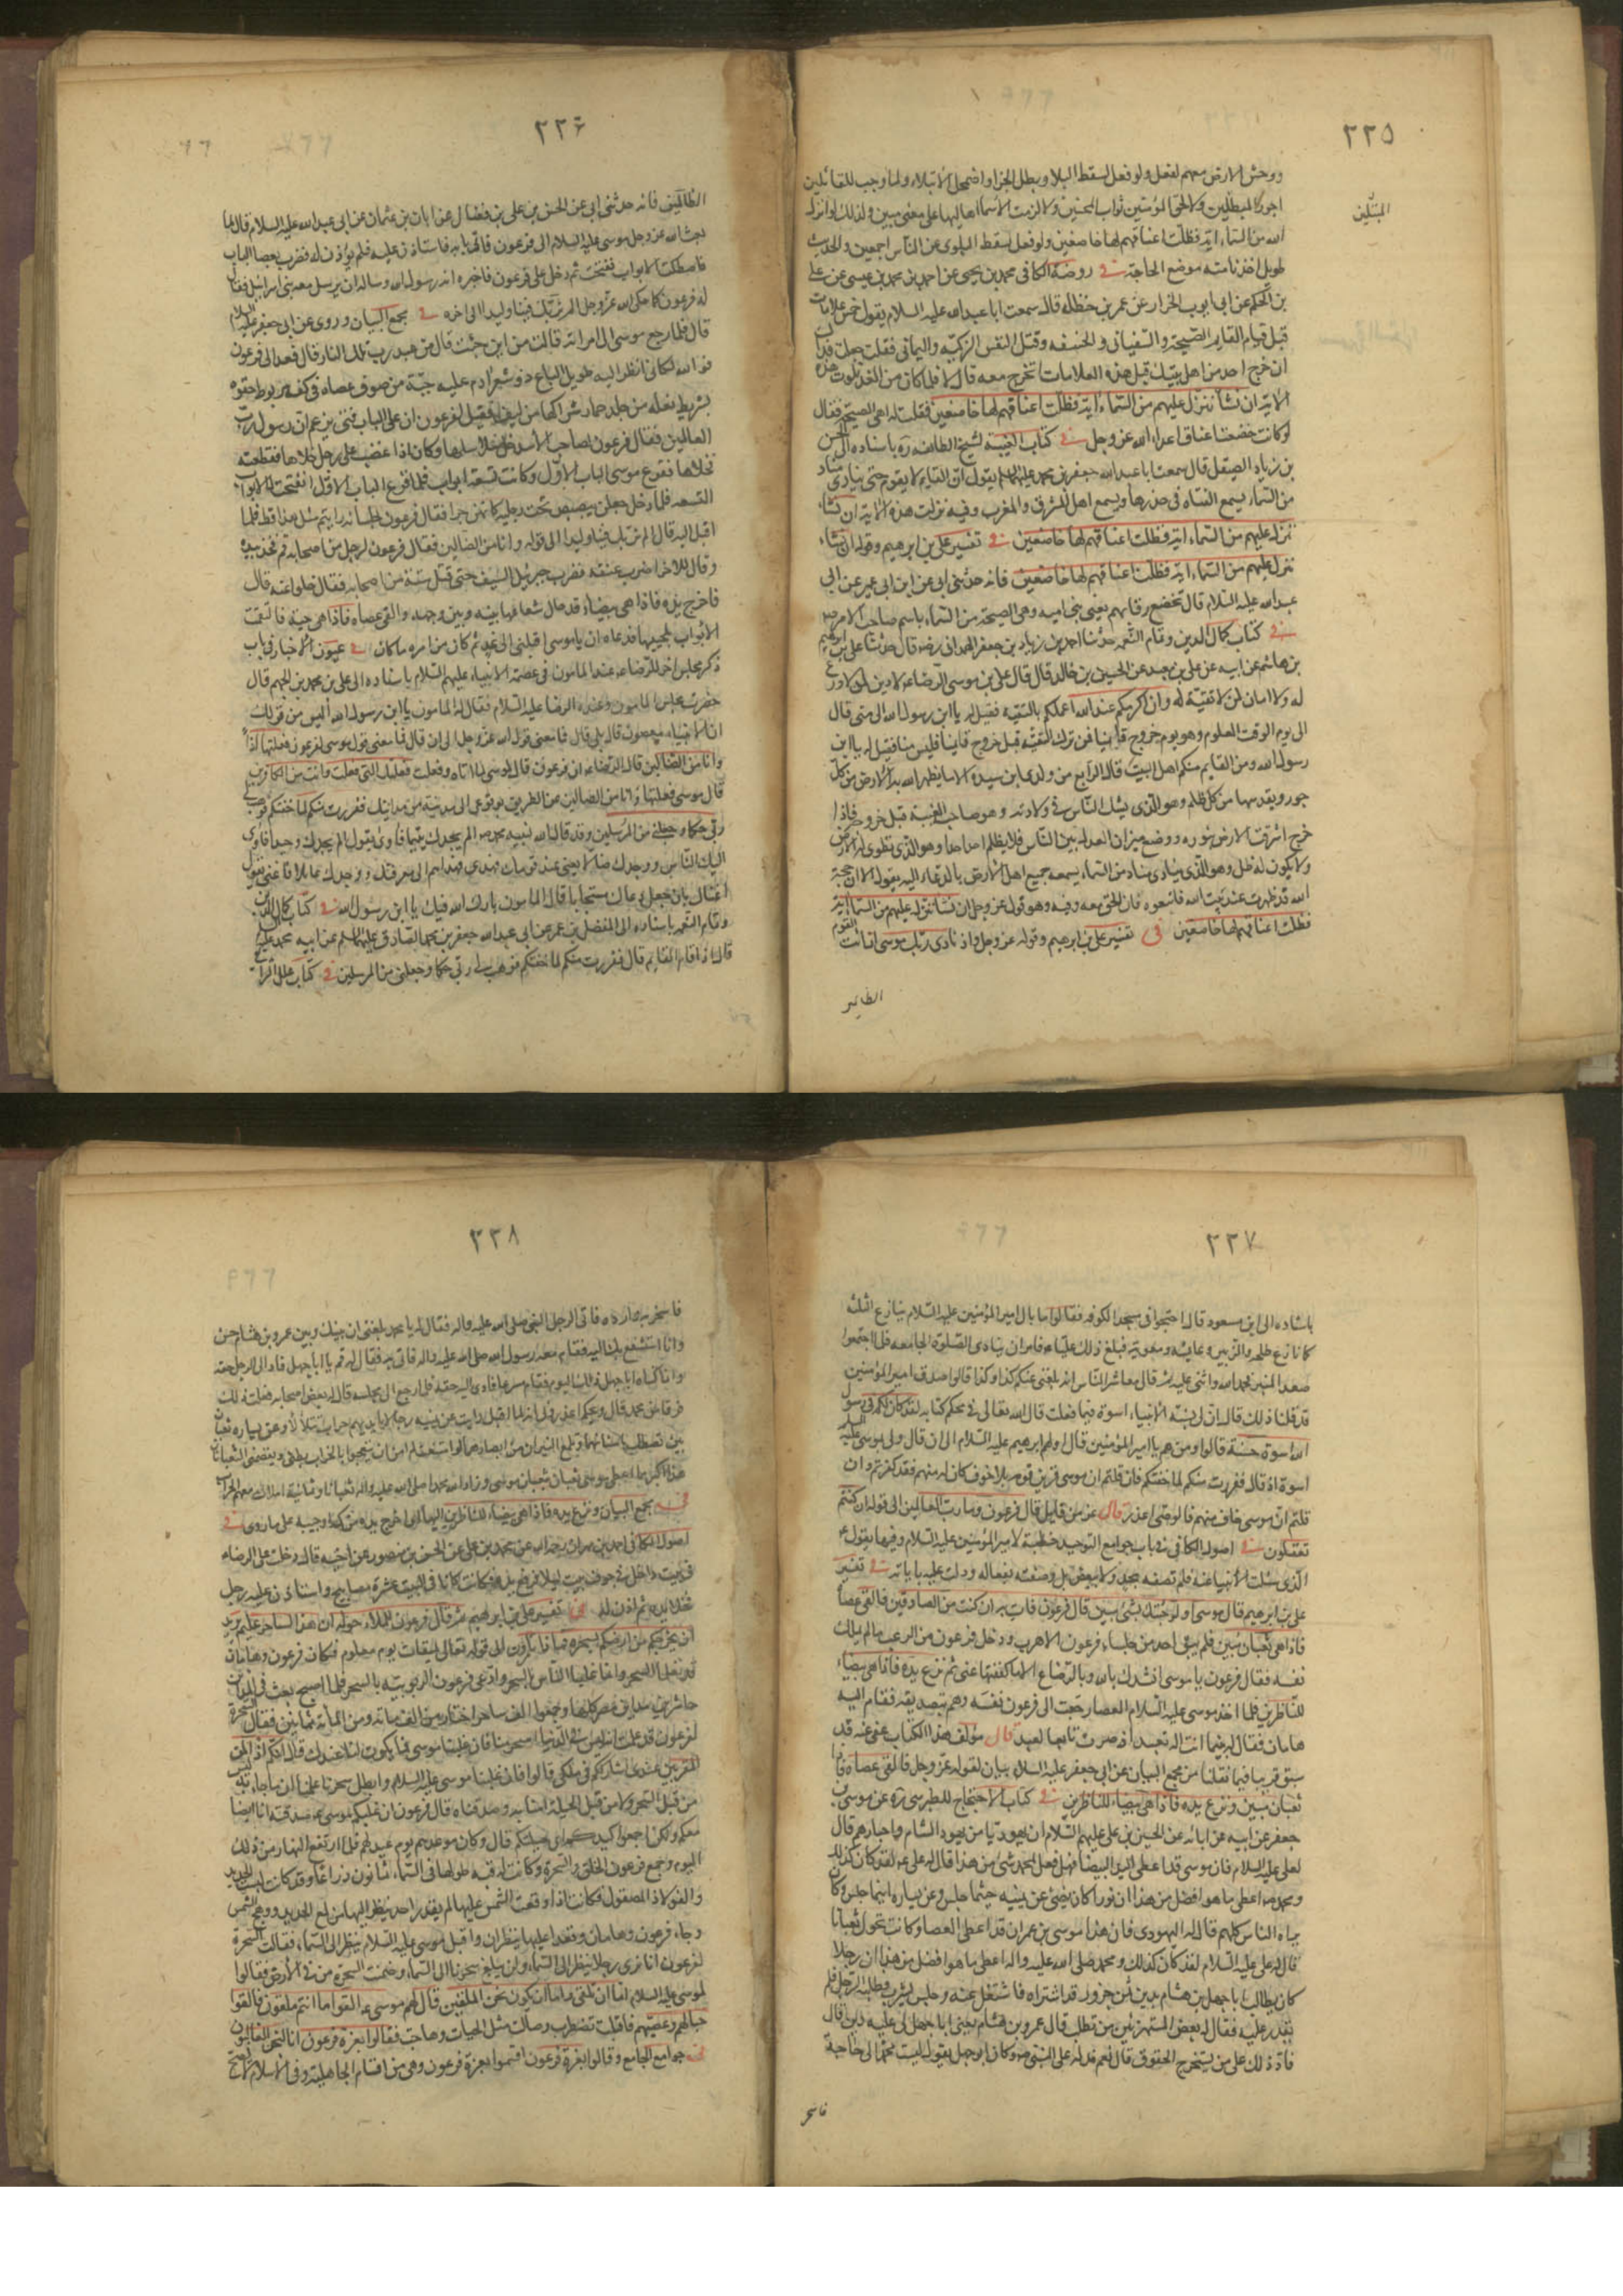 ٢٢٥
ووحش الارض معهم لفعل ولو فعل لسقط البلاء وبطل الجزاء واضمحل الابتلاء ولما وجب للقائلين
اجور المبتلين ولا لحق المؤمنين ثواب المحسنين ولا لزمت الاسماء اهاليها على معنى مبين ولذلك لو انزل
المبتلين
الله من السماء اية فظلت اعناقهم لها خاضعين ولو فعل لسقط البلوى عن الناس اجمعين والحديث
طويل اخذنا منه موضع الحاجة في روضة الكافي محمد بن يحيى عن احمد بن محمد بن عيسى عن علي
بن الحكم عن ابي ايوب الخزاز عن عمر بن حنظلة قال سمعت ابا عبد الله عليه السلام يقول خمس علامات
قبل قيام القايم الصيحة والسفياني والخسفه وقتل النفس الزكيه واليماني فقلت جعلت فداك
ان خرج احد من اهل بيتك قبل هذه العلامات انخرج معه قال لا فلما كان من الغد تلوت هذه
الاية ان نشأ ننزل عليهم من السماء اية فظلت اعناقهم لها خاضعين فقلت له اهي الصيحة فقال
لو كانت خضعت اعناق اعداء الله عز وجل في كتاب الغيبة لشيخ الطائفه ره باسناده الى الحسن
بن زياد الصيقل قال سمعت ابا عبد الله جعفر بن محمد عليهما السلام يقول ان القايم لا يقوم حتى ينادي مناد
من السماء يسمع الفتاه في خدرها ويسمع اهل المشرق والمغرب وفيه نزلت هذه الاية ان نشاء
ننزل عليهم من السماء اية فظلت اعناقهم لها خاضعين في تفسير علي بن ابرهيم وقوله ان نشاء
ننزل عليهم من السماء اية فظلت اعناقهم لها خاضعين فانه حدثني ابي عن ابن ابي عمير عن ابي
عبد الله عليه السلام قال تخضع رقابهم يعني بني اميه وهي الصيحة من السماء باسم صاحب الامر
في كتاب كمال الدين وتمام النعمه حدثنا احمد بن زياد بن جعفر الهمداني رضه قال حدثنا علي بن ابرهيم
بن هاشم عن ابيه عن علي بن معبد عن الحسين بن خالد قال قال علي بن موسى الرضا ع لا دين لمن لا ورع
له ولا امان لمن لا تقية له وان اكرمكم عند الله اعملكم بالتقيه فقيل له يا ابن رسول الله الى متى قال
الى يوم الوقت المعلوم وهو يوم خروج قائمنا فمن ترك التقيه قبل خروج قايمنا فليس منا فقيل له يا ابن
رسول الله ومن القايم منكم اهل البيت قال الرابع من ولدي ابن سيدة الاماء يطهر الله به الارض من كل
جور ويقدسها من كل ظلم وهو الذي يشك الناس في ولادته وهو صاحب الغيبة قبل خروجه فاذا
خرج اشرقت الارض بنوره ووضع ميزان العدل بين الناس فلا يظلم احد احدا وهو الذي تطوى له الارض
ولا يكون له ظل وهو الذي ينادي مناد من السماء يسمعه جميع اهل الارض بالدعاء اليه يقول الا ان حجة
الله قد ظهرت عند بيت الله فاتبعوه فان الحق معه وفيه وهو قول عز وجل ان نشأ ننزل عليهم من السماء اية
فظلت اعناقهم لها خاضعين في تفسير علي بن ابرهيم وقوله عز وجل واذ نادى ربك موسى ان ائت القوم
٢٢۶
الظالمين فانه حدثني ابي عن الحسن بن علي بن فضال عن ابان بن عثمان عن ابي عبد الله عليه السلام قال لما
بعث الله عز وجل موسى عليه السلام الى فرعون فاتى بابه فاستاذن عليه فلم يؤذن له فضرب بعصاه الباب
فاصطكت الابواب ففتحت ثم دخل على فرعون فاخبره انه رسول الله وساله ان يرسل معه بني اسرائيل فقال
له فرعون كما حكى الله عز وجل الم نربك فينا وليدا الى اخره في مجمع البيان وروى عن ابي جعفر عليه السلام
قال فلما رجع موسى الى امراته قالت من اين جئت قال من عند رب تلك النار قال فغدا الى فرعون
فوالله لكاني انظر اليه طويل الباع ذو شعر ادم عليه جبة من صوف عصاه في كفه مربوط حقوه
بشريط نعله من جلد حمار شراكها من ليف فقيل لفرعون ان على الباب فتى يزعم انه رسول رب
العالمين فقال فرعون لصاحب الاسد خل سلاسلها وكان اذا غضب على رجل خلاها فقطعته
فخلاها فقرع موسى الباب الاول وكانت تسعة ابواب فلما قرع الباب الاول انفتحت له الابواب
التسعه فلما دخل جعلن يبصبصن تحت رجليه كانهن جرا فقال فرعون لجلسائه رايتم مثل هذا قط فلما
اقبل اليه قال الم نربك فينا وليدا الى قوله وانا من الضالين فقال فرعون لرجل من اصحابه قم فخذ بيده
وقال للاخر اضرب عنقه فضرب جبرئيل السيف حتى قتل ستة من اصحابه فقال خلوا عنه قال
فاخرج يده فاذا هي بيضاء قد حال شعاعها بينه وبين وجهه والقى عصاه فاذا هي حية فالتقمت
الايوان بلحييها فدعاه ان يا موسى اقلني الى غد ثم كان من امره ما كان في عيون الاخبار في باب
ذكر مجلس اخر للرضا ع عند المامون في عصمة الانبياء عليهم السلام باسناده الى علي بن محمد بن الجهم قال
حضرت مجلس المامون وعنده الرضا عليه السلام فقال له المامون يا ابن رسول الله أليس من قولك
ان الانبياء معصومون قال بلى قال فما معنى قول الله عز وجل الى ان قال فما معنى قول موسى لفرعون فعلتها اذا
وانا من الضالين قال الرضا ع ان فرعون قال لموسى لما اتاه وفعلت فعلتك التي فعلت وانت من الكافرين
قال موسى فعلتها اذا وانا من الضالين عن الطريق بوقوعي الى مدينة من مداينك ففررت منكم لما خفتكم فوهب لي
ربي حكما وجعلني من المرسلين وقد قال الله لنبيه محمد صم الم يجدك يتيما فاوى يقول الم يجدك وحيدا فاوى
اليك الناس ووجدك ضالا يعني عند قومك فهدى فهداهم الى معرفتك ووجدك عائلا فاغنى يقول
اغناك بان جعل دعاك مستجابا قال المامون بارك الله فيك يا ابن رسول الله في كتاب كمال الدين
وتمام النعمه باسناده الى المفضل بن عمر عن ابي عبد الله جعفر بن محمد الصادق عليهما السلم عن ابيه محمد بن علي ع
قال اذا قام القايم قال ففررت منكم لما خفتكم فوهب لي ربي حكما وجعلني من المرسلين في كتاب علل الشرايع
٢٢٧
باسناده الى ابن مسعود قال احتجوا في مسجد الكوفه فقالوا ما بال امير المؤمنين عليه السلام لم ينازع الثلثة
كما نازع طلحه والزبير وعايشه ومعوية فبلغ ذلك عليا ع فامر ان ينادى الصلوة الجامعه فلما اجتمعوا
صعد المنبر فحمد الله واثنى عليه ثم قال معاشر الناس انه بلغني عنكم كذا وكذا قالوا صدق امير المؤمنين
قد قلنا ذلك قال ان لي بسنة الانبياء اسوة فيما فعلت قال الله تعالى في محكم كتابه لقد كان لكم في رسول
الله اسوة حسنة قالوا ومن هم يا امير المؤمنين قال اولهم ابرهيم عليه السلام الى ان قال ولي بموسى عليه السلم
اسوة اذ قال ففررت منكم لما خفتكم فان قلتم ان موسى فر من قومه بلا خوف كان له منهم فقد كفرتم وان
قلتم ان موسى خاف منهم فالوصي اعذر قال عز من قائل قال فرعون وما رب العالمين الى قوله ان كنتم
تعقلون في اصول الكافي في باب جوامع التوحيد خطبة لامير المؤمنين عليه السلام وفيها يقول ع
الذي سئلت الانبياء عنه فلم تصفه بحد ولا ببعض بل وصفته بفعاله ودلت عليه باياته في تفسير
علي بن ابرهيم قال موسى اولو جئتك بشئ مبين قال فرعون فات به ان كنت من الصادقين فالقى عصاه
فاذا هي ثعبان مبين فلم يبق احد من جلساء فرعون الا هرب ودخل فرعون من الرعب ما لم يملك
نفسه فقال فرعون يا موسى انشدك بالله وبالرضاع الا ما كففتها عني ثم نزع يده فاذا هي بيضاء
للناظرين فلما اخذ موسى عليه السلام العصا رجعت الى فرعون نفسه وهم بتصديقه فقام اليه
هامان فقال له بينما انت اله تعبد اذ صرت تابعا لعبد قال مؤلف هذا الكتاب عفى عنه قد
سبق قريبا فيما نقلنا من مجمع البيان عن ابي جعفر عليه السلام بيان لقوله عز وجل فالقى عصاه فاذا هي
ثعبان مبين ونزع يده فاذا هي بيضاء للناظرين في كتاب الاحتجاج للطبرسي ره عن موسى بن
جعفر عن ابيه عن ابائه عن الحسين بن علي عليهم السلام ان يهوديا من يهود الشام واحبارهم قال
لعلي عليه السلام فان موسى قد اعطى اليد البيضاء فهل فعل بمحمد شئ من هذا قال له علي ع لقد كان كذلك
ومحمد صم اعطى ما هو افضل من هذا ان نورا كان يضئ عن يمينه حيثما جلس وعن يساره اينما جلس وكان
يراه الناس كلهم قال له اليهودي فان هذا موسى بن عمران قد اعطى العصا وكانت تحول ثعبانا
قال له علي عليه السلام لقد كان كذلك ومحمد صلى الله عليه واله اعطى ما هو افضل من هذا ان رجلا
كان يطالب ابا جهل بن هشام بدين ثمن جزور قد اشتراه فاشتغل عنه وجلس يشرب وطلبه الرجل فلم
يقدر عليه فقال له بعض المستهزئين من تطلب قال عمرو بن هشام يعني ابا جهل لي عليه دين قال
فادلك على من يستخرج الحقوق قال نعم فدله على النبي صم وكان ابو جهل يقول ليت لمحمد الي حاجة
فاسخر
٢٢٨
فاسخر به وارده فاتى الرجل النبي صلى الله عليه واله فقال له يا محمد بلغني ان بينك وبين عمرو بن هشام حسن
وانا استشفع بك اليه فقام معه رسول الله صلى الله عليه واله فاتى بابه فقال له قم يا ابا جهل فاد الى الرجل حقه
وانما كناه ابا جهل ذلك اليوم فقام مسرعا فادى اليه حقه فلما رجع الى مجلسه قال له بعض اصحابه فعلت ذلك
فرقا من محمد قال ويحكم اعذروني انه لما اقبل رايت عن يمينه رجالا بايديهم حراب تتلألأ وعن يساره ثعبانان
هذا اكبر مما اعطي موسى ثعبان بثعبان موسى وزاد الله محمدا صلى الله عليه واله ثعبانا وثمانية املاك معهم الحراب
في مجمع البيان ونزع يده فاذا هي بيضاء للناظرين
اصول الكافي احمد بن مهران رحمه الله عن محمد بن علي عن الحسن بن منصور عن اخيه قال دخلت على الرضا ع
في بيت داخل في جوف بيت ليلا فرفع يده فكانت كان في البيت عشرة مصابيح واستاذن عليه رجل
فخلا يده ثم اذن له في تفسير علي بن ابرهيم ثم قال فرعون للملاء حوله ان هذا لساحر عليم يريد
ان يخرجكم من ارضكم بسحره فماذا تأمرون الى قوله تعالى لميقات يوم معلوم فكان فرعون وهامان
قد تعلما السحر وانما غلبا الناس بالسحر وادعى فرعون الربوبيه بالسحر فلما اصبح بعث في المداين
حاشرين مداين مصر كلها وجمعوا الف ساحر واختاروا من الالف مائة ومن المائة ثمانين فقال السحرة
لفرعون قد علمت انه ليس في الدنيا اسحر منا فان غلبنا موسى فما يكون لنا عندك قال انكم اذا لمن
المقربين عندي اشارككم في ملكي قالوا فان غلبنا موسى عليه السلام وابطل سحرنا علمنا ان ما جاء به ليس
من قبل السحر ولا من قبل الحيلة امنا به وصدقناه قال فرعون ان غلبكم موسى ع صدقته انا ايضا
معكم ولكن اجمعوا كيدكم اي حيلتكم قال وكان موعدهم يوم عيد لهم فلما ارتفع النهار من ذلك
اليوم وجمع فرعون الخلق والسحرة وكانت له قبه طولها في السماء ثمانون ذراعا وقد كانت لبست الحديد
والفولاذ المصقول فكانت اذا وقعت الشمس عليها لم يقدر احد ينظر اليها من لمع الحديد ووهج الشمس
وجاء فرعون وهامان وقعدا عليها ينظران واقبل موسى عليه السلام ينظر الى السماء فقالت السحرة
لفرعون انا نرى رجلا ينظر الى السماء ولن يبلغ سحرنا الى السماء وضمنت السحرة من في الارض فقالوا
لموسى عليه السلام اما ان تلقي واما ان نكون نحن الملقين قال لهم موسى ع القوا ما انتم ملقون فالقوا
حبالهم وعصيهم فاقبلت تضطرب وصالت مثل الحيات وهاجت فقالوا بعزة فرعون انا لنحن الغالبون
في جوامع الجامع وقالوا بعزة فرعون اقسموا بعزة فرعون وهي من اقسام الجاهلية وفي الاسلام لا يصح